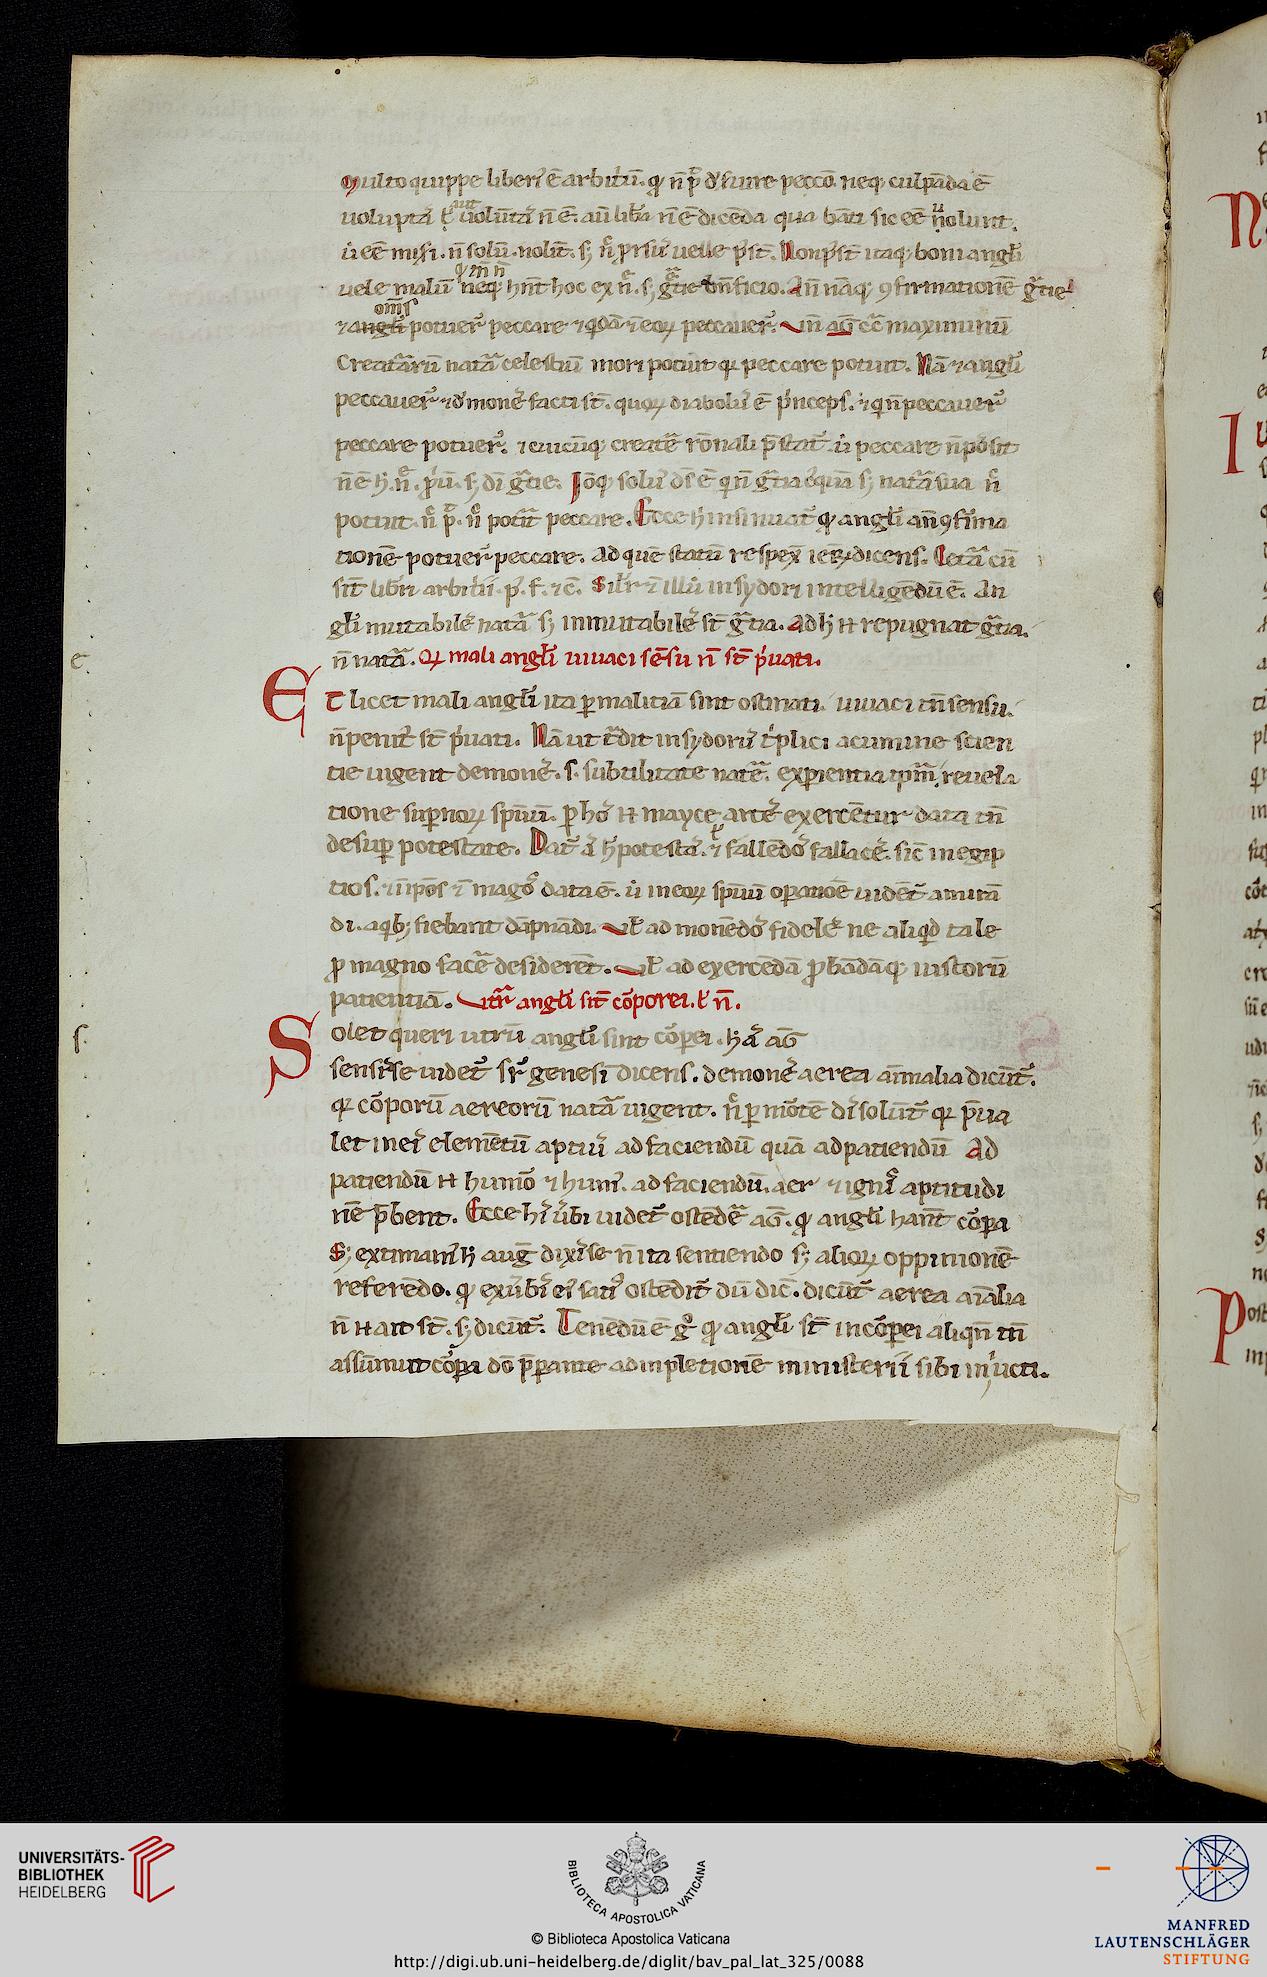 Multo quippe liberi᷒ ē arbitriū. qđ n̄ p̄t deseruire peccō. neq; culpāda ē
uoluptā ł uolūtā n̄ ē. aū lib̄a n̄ ē dicēda qua bāti sic eē nolunt.
ut eē misi. n̄ solū. nolūt. s; n̄ prsus uelle pn̄t. Non pn̄t itaq; boni angli
uele malū neq; hn̄t hoc ex n̄. s; gr̄tie bn̄ficio. An̄ nāq; ɔfirmationē gr̄tie
omēs
⁊ angli potuer̄ peccare ⁊ qdā ī eoꝝ peccauer̄. Vn̄ aḡ cc̄ maximinū
Creat̄arū nat̄a celestiū mori potuit qꝛ peccare potuit. Nā ⁊ angli
peccauer̄ ⁊ demones facti st̄. quoꝝ diabolus ē p̄nceps. ⁊ qi n̄ peccauer̄
peccare potuer̄. ⁊ cuicūq; creat̄e rōnali p̄stat̄. ut peccare n̄ possit
n̄ ē h. n̄e. p̄u. s; dī gr̄tie. Ioq; solus ds̄ ē qi n̄ gr̄tia cuiq̄uā s; nat̄a sua n̄
potuit. n̄ p̄t. n̄ potit̄ peccare. Ecce h insinuat̄ qđ angli an̄ ɔfirma
tionē potuer̄ peccare. ad quē statū respex̄ ier̄. dicens. Cet̄a cū
sīt libr̄i arbit̄ii. p̄. f. ⁊c̄. Silr̄ ⁊ illd̄ insydori intelligēdū ē. An
gli mutabiles nat̄a s; inmutabiles st̄ gr̄tia. ad h ꝉ repugnat gr̄tia.
n̄ nat̄a. Qꝛ mali angli uiuaci sēsu n̄ st̄ p̄uati.
e
Et licet mali angli ita p malitiā sint ostinati. uiuaci tn̄ sensu.
n̄ penit̄ st̄ p̄uati. Nā ut t̄dit insydorus t̄plici acumine scien
tie uigent demones. s. subtilitate nat̄e. expientia tpm̄. reuela
tione supnoꝝ spūū. p hos ꝉ mayce artes exercētur data tn̄
desup potestate. Dat̄ aut h potestas. ł fallēdos fallaces. sic̄ in egip
tios. ⁊ in ip̄os ī magos data ē. ut in eoꝝ spūū opatiōe uidēt̄ amirā
di. a qb; fiebant dāpnādi. Vł ad monēdos fideles ne aliqd tale
p magno facē desiderēt. Vł ad exercēdā p̄bādāq; iustorū
patientiā. Vtr̄ angli sīt cōporei. ł n̄.
s.
Solet queri utrū angli sint cōpei. h aut aḡ
sensisse uidet̄ sr̄ genesī dicens. demones aerea anīmalia dicūt̄.
qꝛ cōporū aereorū nat̄a uigent. n̄ p mōtē dissoluūt̄ qꝛ p̄ua
let in eis elemētū aptius ad faciendū quā ad patiendū Ad
patiendū ꝉ humō ⁊ hum᷒. ad faciendū. aer ⁊ ignis aptitudi
nē p̄bent. Ecce his ūbi uidet̄ ostēde aḡ. qđ angli hant̄ cōpa
S; extimam᷒ h aug̅ dixisse n̄ ita sentiendo s; alioꝝ oppinionē
referēdo. qđ ex ūbis eius satis ostēdit̄ dū dic̄. dicūt̄ aerea aīalia
n̄ ꝉ ait st̄. s; dicūt̄. Tenendū ē gͦ qđ angli st̄ incōpei aliqn̄ tn̄
assūmūt cōpa dō p̄parante ad inpletionē ministerii sibi iniucti.
UNIVERSITÄTS-
BIBLIOTHEK
HEIDELBERG
BIBLIOTECA APOSTOLICA VATICANA
© Biblioteca Apostolica Vaticana
http://digi.ub.uni-heidelberg.de/diglit/bav_pal_lat_325/0088
MANFRED
LAUTENSCHLÄGER
STIFTUNG